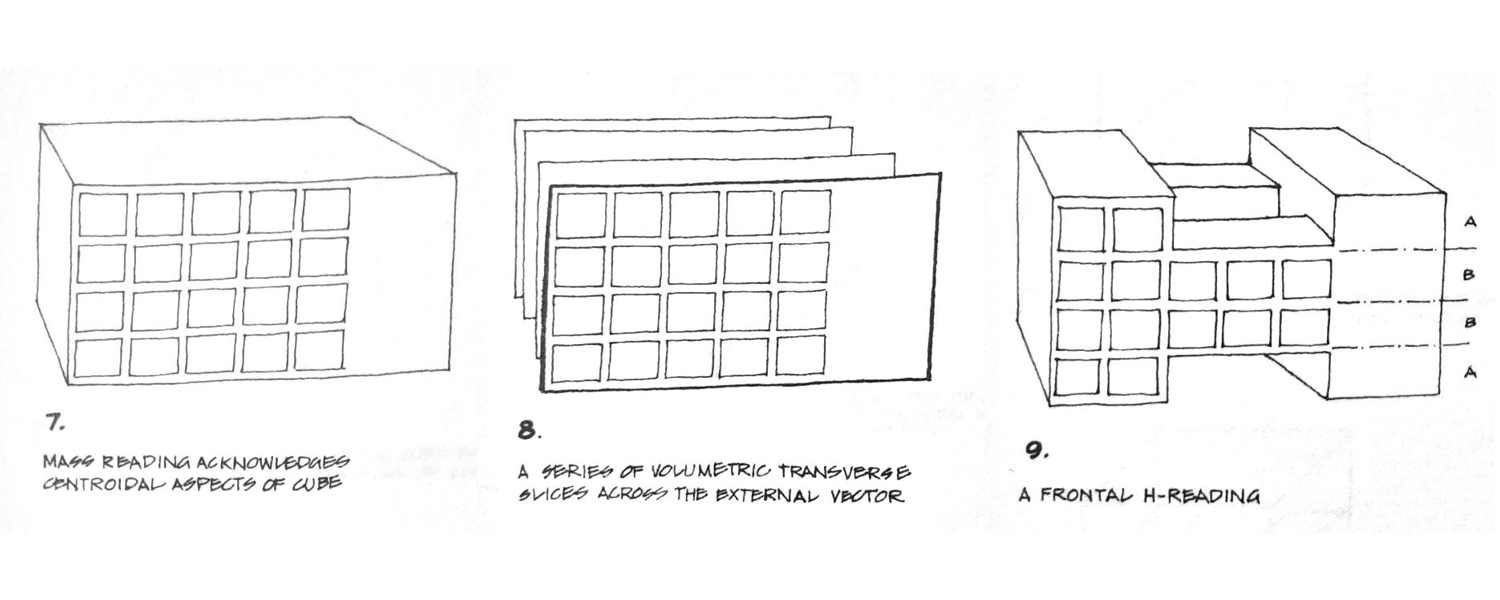 7.
MASS READING ACKNOWLEDGES
CENTROIDAL ASPECTS OF CUBE
8.
A SERIES OF VOLUMETRIC TRANSVERSE
SLICES ACROSS THE EXTERNAL VECTOR
A
B
B
A
9.
A FRONTAL H-READING